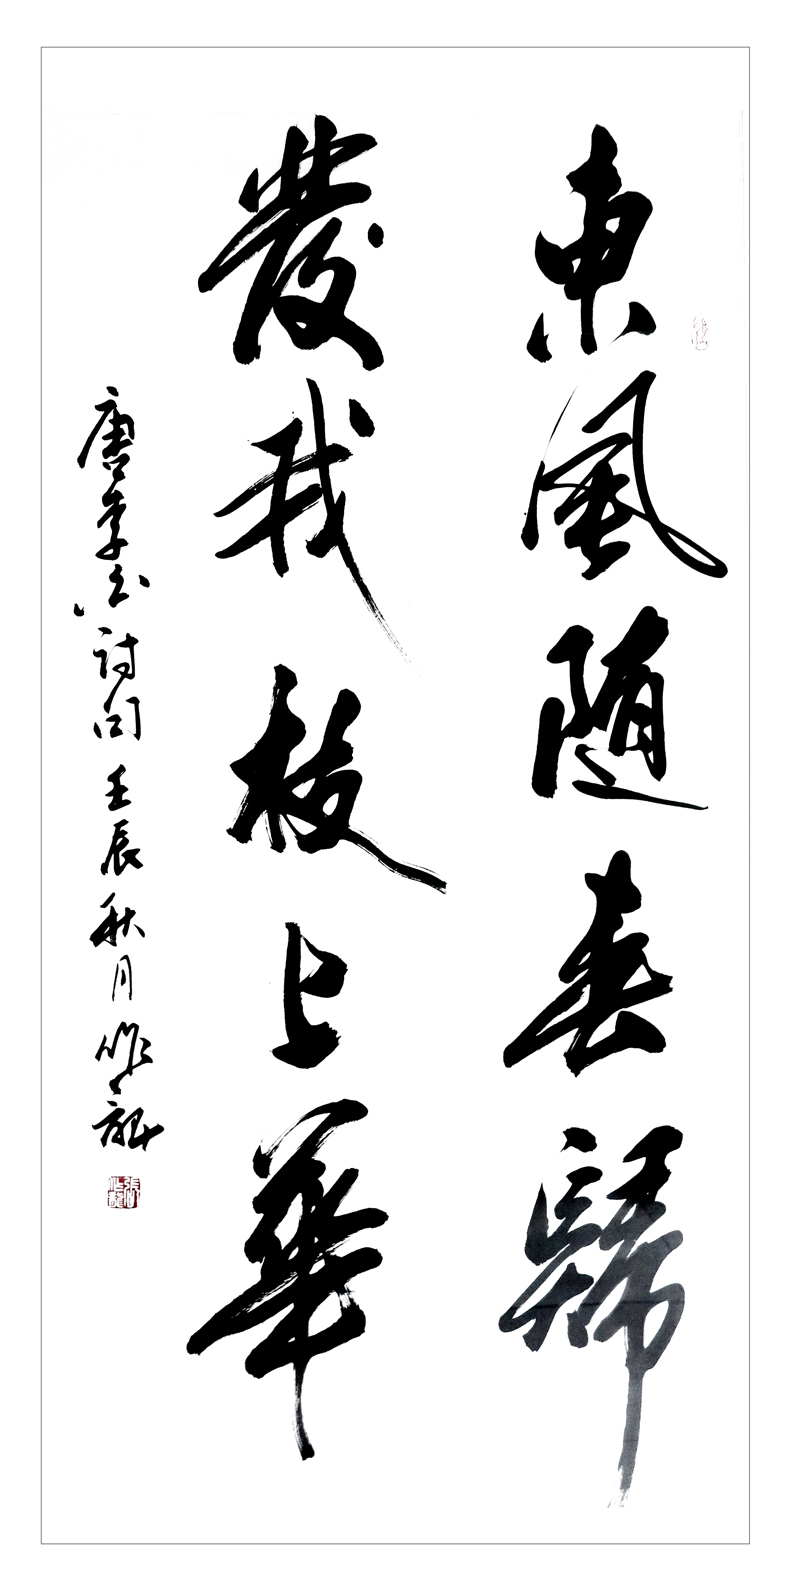 東風随春歸
發我枝上華
唐李白詩句壬辰秋月作龍